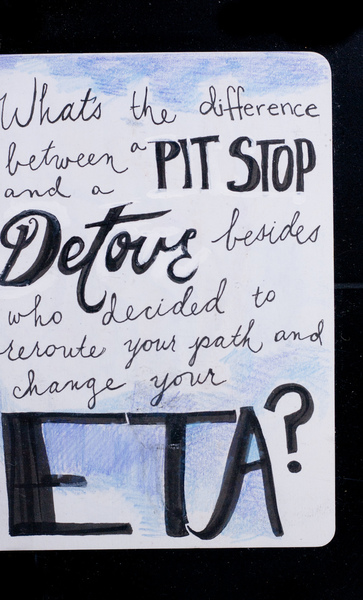 What's the difference
between a PIT STOP
and a
Detour besides
who decided to
reroute your path and
change your
ETA?